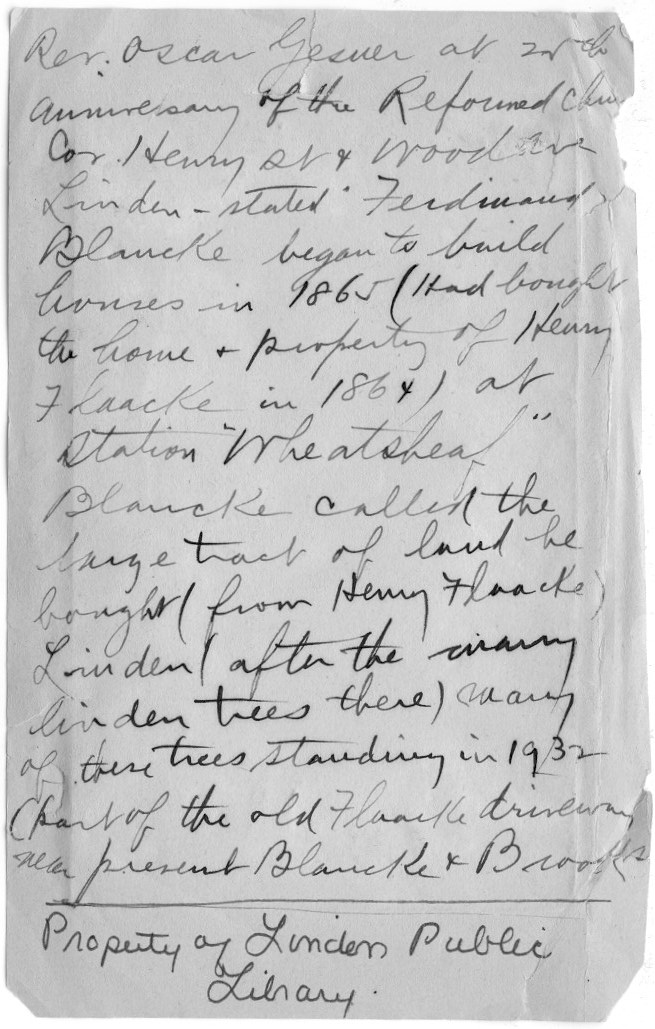 Rev. Oscar Gesner at 25th
anniversary of the Reformed
Cor. Henry St & Wood Ave
Linden - stated Ferdinand
Blancke began to build
houses in 1865 (Had bought
the home & property of Henry
Flaacke in 1864) at
Station "Wheatsheaf"
Blancke called the
large tract of land he
bought (from Henry Flaacke)
Linden (after the many
linden trees there) many
of these trees standing in 1932
(part of the old Flaacke driveway
near present Blancke & Brooks
Property of Linden Public
Library.